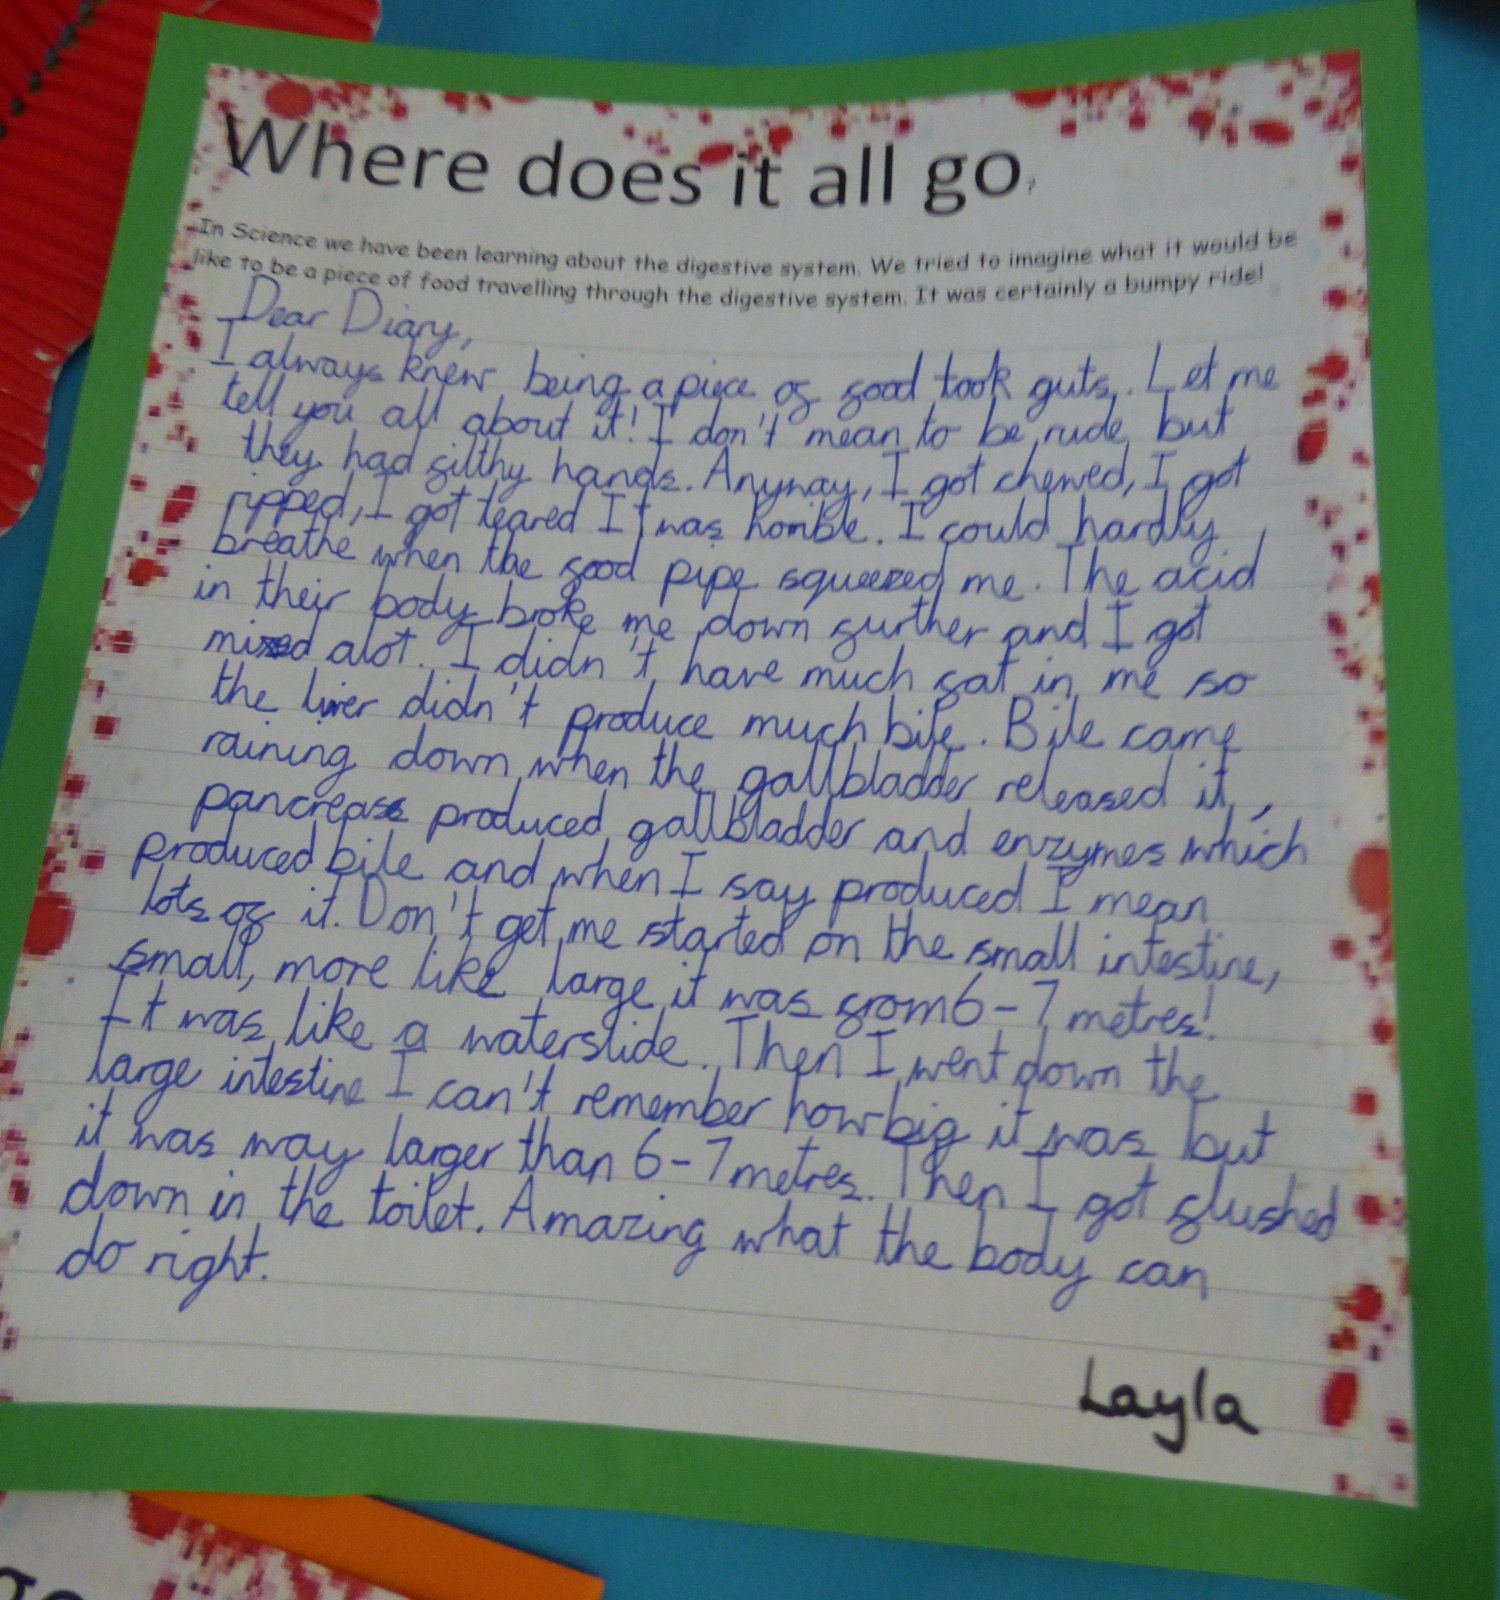 Where does it all go?
In Science we have been learning about the digestive system. We tried to imagine what it would be
like to be a piece of food travelling through the digestive system. It was certainly a bumpy ride!
Dear Diary,
I always knew being a piece of food took guts. Let me
tell you all about it! I don't mean to be rude but
they had filthy hands. Anyway, I got chewed, I got
ripped, I got teared I t was horrible. I could hardly
breathe when the food pipe squeezed me. The acid
in their body broke me down further and I got
mixed alot. I didn't have much fat in me so
the liver didn't produce much bile. Bile came
raining down when the gallbladder released it,
pancreas produced gallbladder and enzymes which
produced bile and when I say produced I mean
lots of it. Don't get me started on the small intestine,
small, more like large it was from 6-7 metres!
It was like a waterslide. Then I went down the
large intestine I can't remember how big it was but
it was way larger than 6-7 metres. Then I got flushed
down in the toilet. Amazing what the body can
do right.
Layla